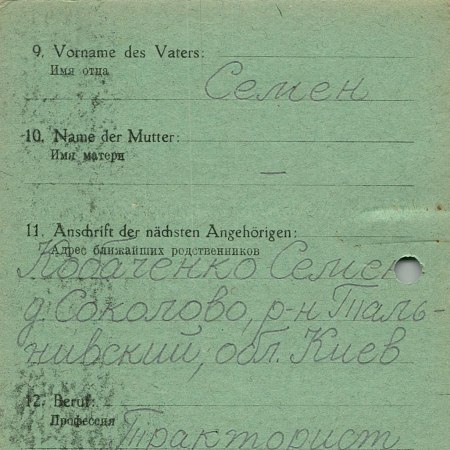 9. Vorname des Vaters:
Имя отца
Семен
10. Name der Mutter:
Имя матери
—
11. Anschrift der nächsten Angehörigen:
Адрес ближайших родственников
Кобаченко Семен
д. Соколово, р-н Таль-
нивский, обл. Киев
12. Beruf:
Профессия
Тракторист